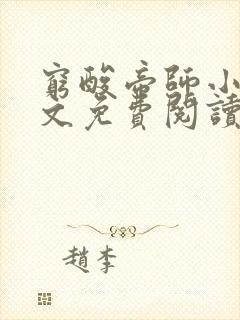 窮酸帝師小
文免費閱讀
趙李